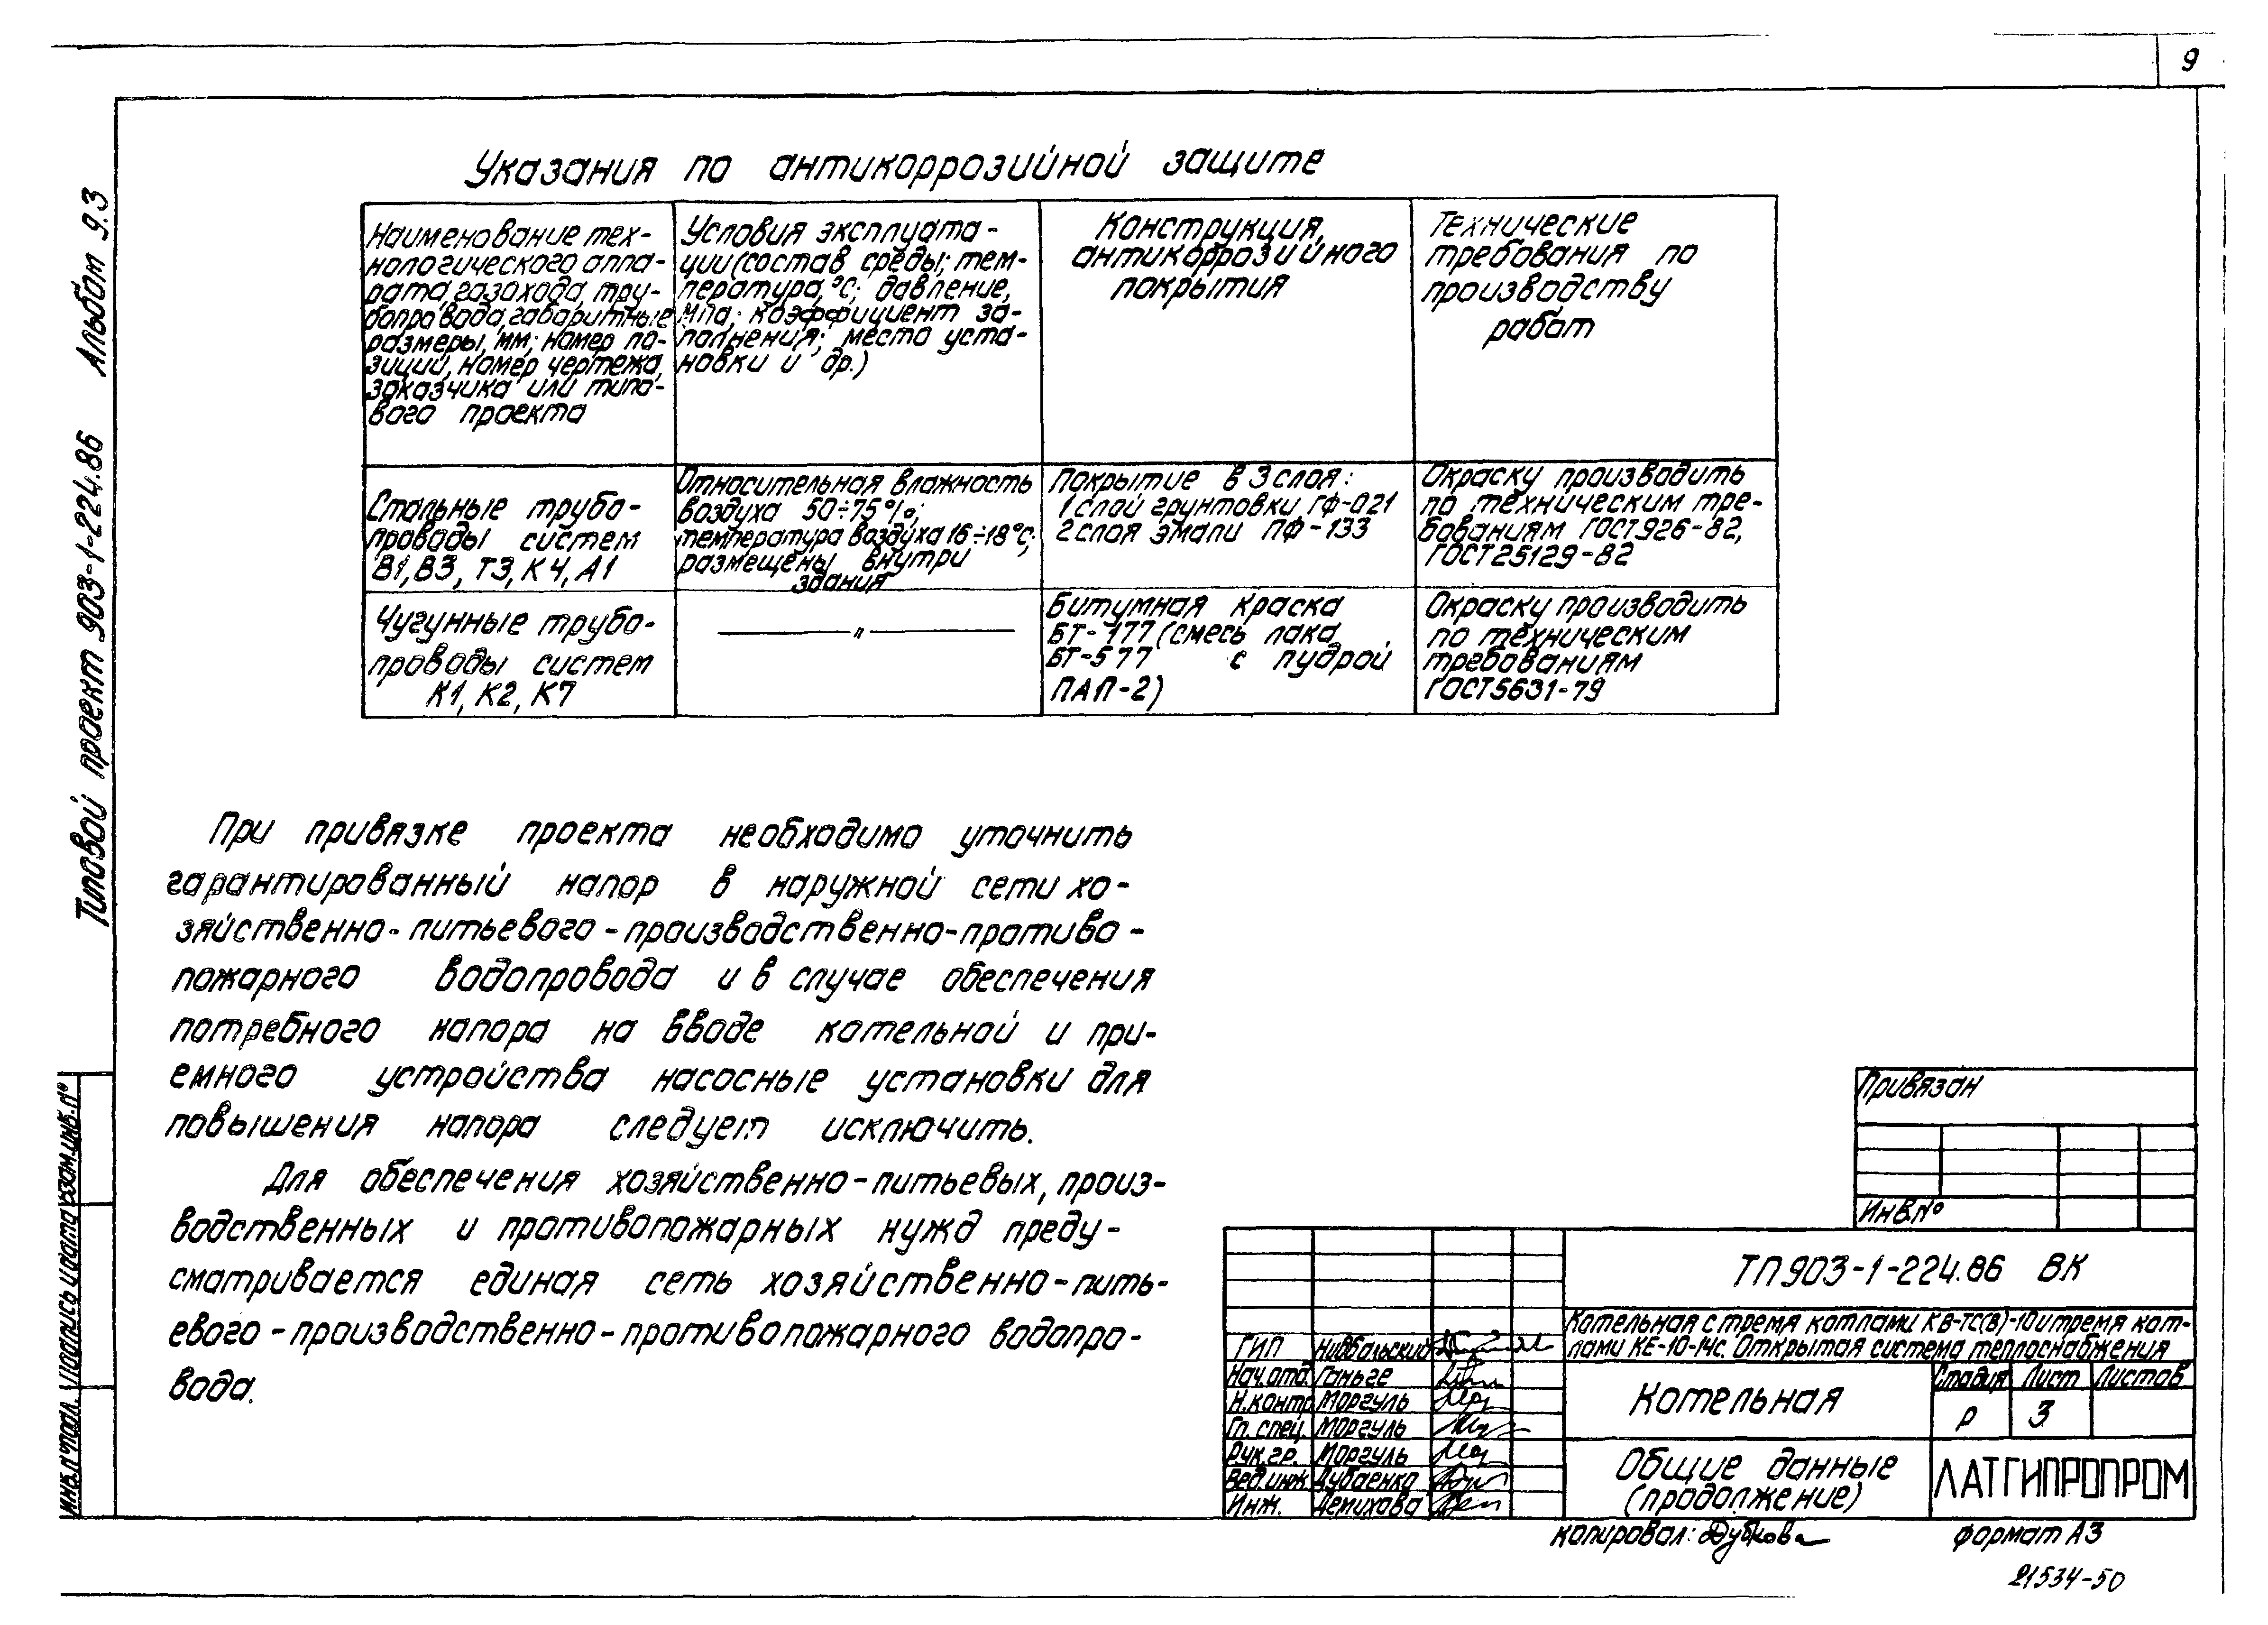 9
Типовой проект 903-1-224.86 Альбом 9.3
Указания по антикоррозийной защите
Наименование тех-
нологического аппа-
рата, газохода, тру-
бопровода, габаритные
размеры, мм; номер по-
зиций, номер чертежа,
заказчика или типо-
вого проекта
Условия эксплуата-
ции (состав среды; тем-
пература, °С; давление,
Мпа; коэффициент за-
полнения; место уста-
новки и др.)
Конструкция,
антикоррозийного
покрытия
Технические
требования по
производству
работ
Стальные трубо-
проводы систем
В1, В3, Т3, К4, А1
Относительная влажность
воздуха 50÷75%;
температура воздуха 16÷18°С;
размещены внутри
здания
Покрытие в 3 слоя:
1 слой грунтовки ГФ-021
2 слоя эмали ПФ-133
Окраску производить
по техническим тре-
бованиям ГОСТ 926-82,
ГОСТ 25129-82
Чугунные трубо-
проводы систем
К1, К2, К7
— " —
Битумная краска
БТ-177 (смесь лака
БТ-577 с пудрой
ПАП-2)
Окраску производить
по техническим
требованиям
ГОСТ 5631-79
При привязке проекта необходимо уточнить
гарантированный напор в наружной сети хо-
зяйственно-питьевого-производственно-противо-
пожарного водопровода и в случае обеспечения
потребного напора на вводе котельной и при-
емного устройства насосные установки для
повышения напора следует исключить.
Для обеспечения хозяйственно-питьевых, произ-
водственных и противопожарных нужд преду-
сматривается единая сеть хозяйственно-пить-
евого-производственно-противопожарного водопро-
вода.
Привязан
Инв.№
ТП 903-1-224.86 ВК
Котельная с тремя котлами КВ-ТС(В)-10 и тремя кот-
лами КЕ-10-14с. Открытая система теплоснабжения
ГИП
Нач.отд. Ганьге
Н.контр Моргуль
Гл. спец. Моргуль
Рук.гр. Моргуль
Вед.инж. Дубаенко
Инж. Демихова
Котельная
Стадия Лист Листов
Р 3
Общие данные
(продолжение)
ЛАТГИПРОПРОМ
Инв.№ подл. Подпись и дата Взам.инв.№
копировал: Дубкова
формат А3
21534-50